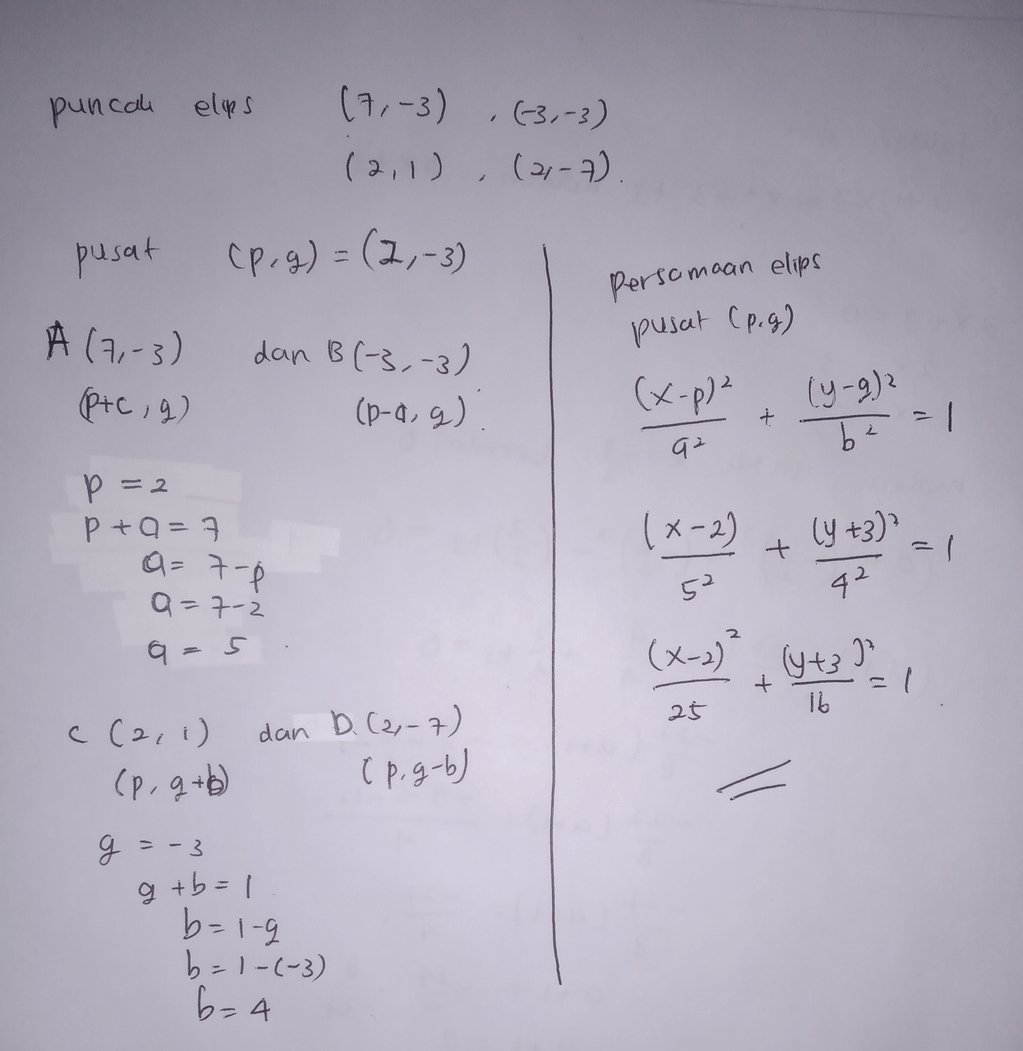 puncak elips (7,-3) , (-3,-3)
(2,1) , (2,-7).
pusat (p,q) = (2,-3)
A (7,-3) dan B (-3,-3)
(p+c, q) (p-a, q).
p = 2
p + a = 7
a = 7-p
a = 7-2
a = 5.
C (2,1) dan D. (2,-7)
(p, q+b) (p, q-b)
q = -3
q + b = 1
b = 1-q
b = 1-(-3)
b = 4
Persamaan elips
pusat (p.q)
(x-p)²/a² + (y-q)²/b² = 1
(x-2)/5² + (y+3)²/4² = 1
(x-2)²/25 + (y+3)²/16 = 1